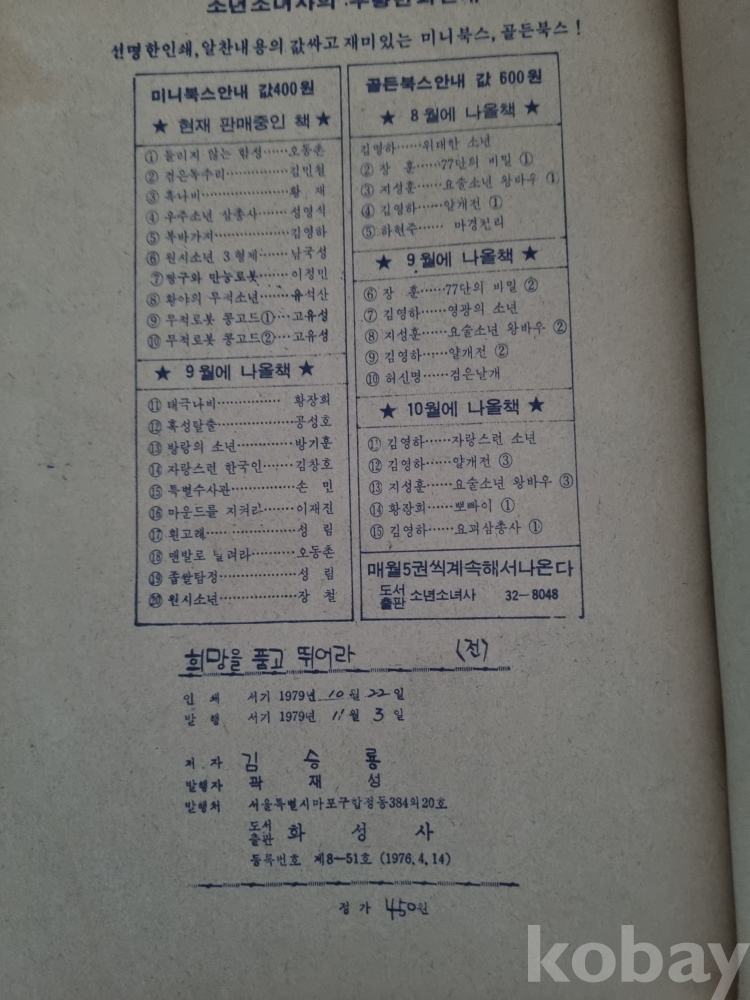 소년소녀사의
선명한인쇄, 알찬내용의 값싸고 재미있는 미니북스, 골든북스!
미니북스안내 값400원
★ 현재 판매중인 책 ★
① 들리지 않는 함성……오동촌
② 검은독수리……김민철
③ 흑나비……황 재
④ 우주소년 삼총사……성영식
⑤ 똑바가지……김영하
⑥ 원시소년 3형제……남국성
⑦ 띵구와 만능로봇……이정민
⑧ 황야의 무적소년……유석산
⑨ 무적로봇 콩고드①……고유성
⑩ 무적로봇 콩고드②……고유성
★ 9월에 나올책 ★
⑪ 태극나비……황장희
⑫ 혹성탈출……공성호
⑬ 방랑의 소년……방기훈
⑭ 자랑스런 한국인……김창호
⑮ 특별수사관……손 민
⑯ 마운드를 지켜라……이재진
⑰ 흰고래……성 림
⑱ 맨발로 달려라……오동촌
⑲ 좁쌀탐정……성 림
⑳ 원시소년……장 철
골든북스안내 값 600원
★ 8월에 나올책 ★
김영하……위대한 소년
② 장 훈……77단의 비밀 ①
③ 지성훈……요술소년 왕바우 ①
④ 김영하……얄개전 ①
⑤ 하현주…… 마경천리
★ 9월에 나올책 ★
⑥ 장 훈……77단의 비밀 ②
⑦ 김영하……영광의 소년
⑧ 지성훈……요술소년 왕바우 ②
⑨ 김영하……얄개전 ②
⑩ 허신명……검은날개
★ 10월에 나올책 ★
⑪ 김영하……자랑스런 소년
⑫ 김영하……얄개전 ③
⑬ 지성훈……요술소년 왕바우 ③
⑭ 황장희……뽀빠이 ①
⑮ 김영하……요괴삼총사 ①
매월5권씩계속해서나온다
도서출판 소년소녀사 32-8048
희망을 품고 뛰어라 (전)
인 쇄 서기 1979년 10월 22일
발 행 서기 1979년 11월 3일
저 자 김 승 룡
발행자 곽 재 성
발행처 서울특별시마포구합정동384의20호
도서출판 화 성 사
등록번호 제8-51호 (1976.4.14)
정 가 450원
kobay